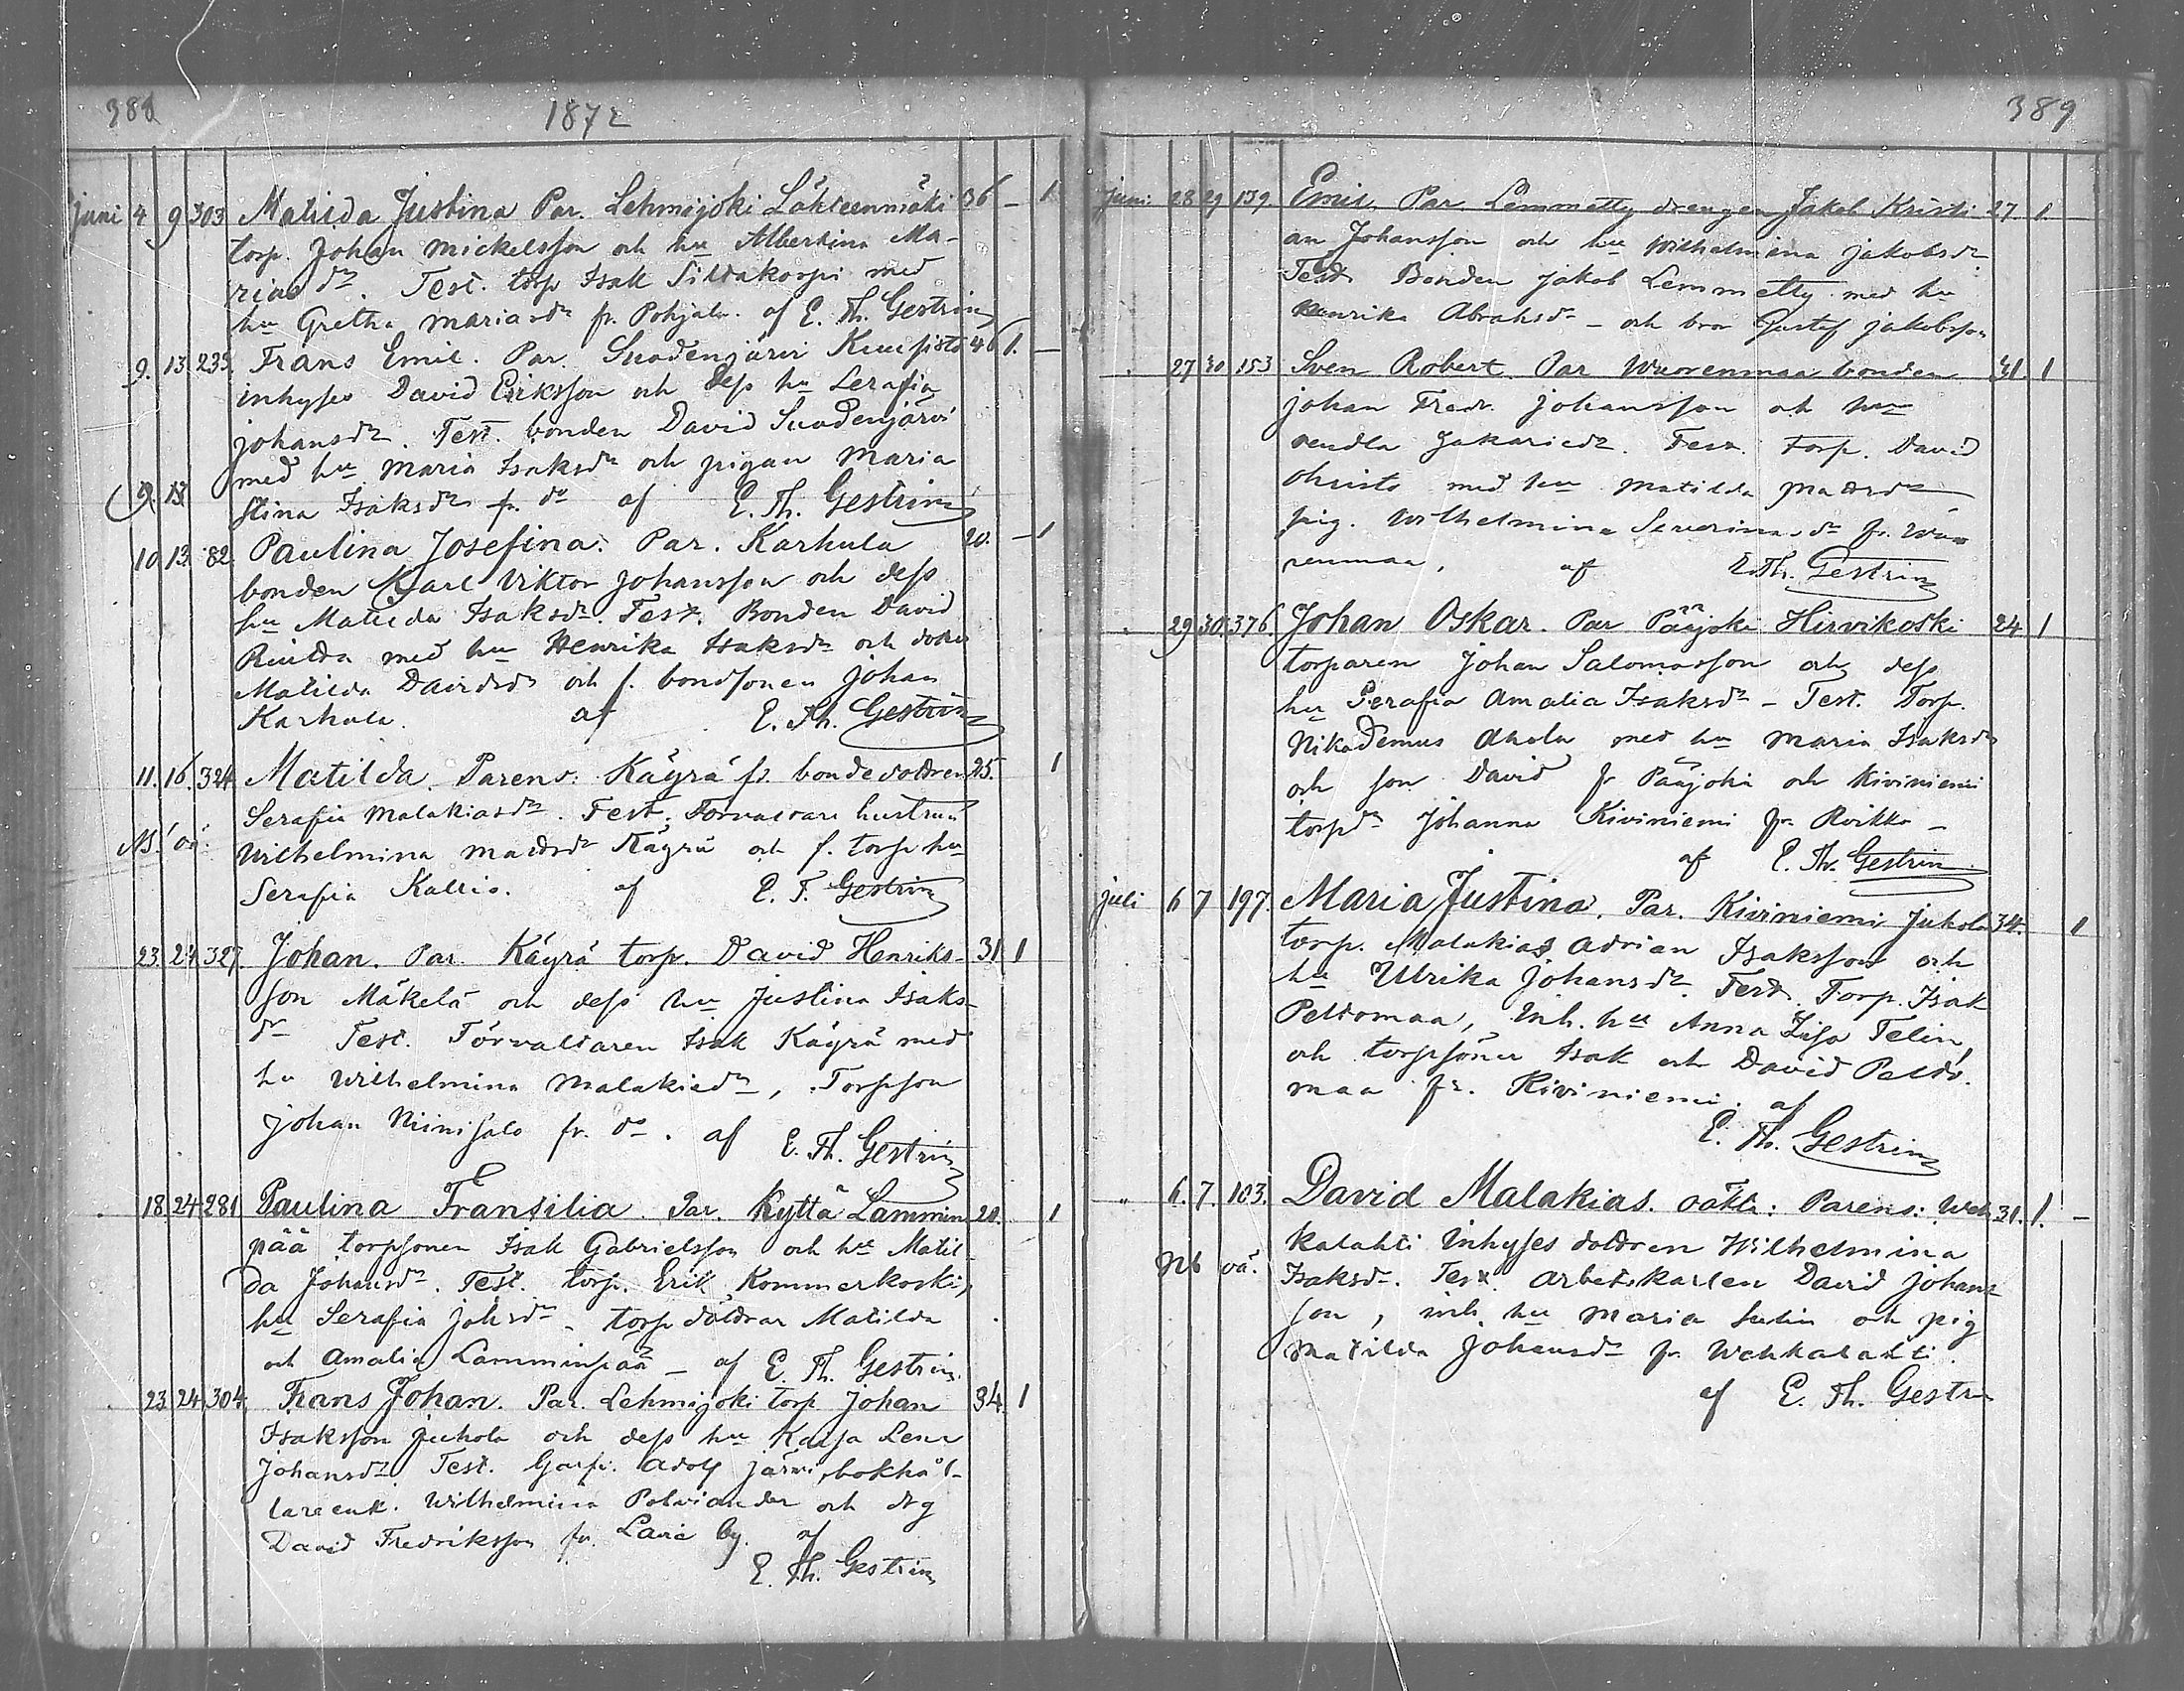 388 1872
juni 4 9 303 Matilda Justina Par. Lehmijoki Lähteenmäki 36 – 1
torp. Johan Mickelsson och hu Albertina Ma-
riasdr. Test. torp Isak Siltakorpi med
hu Gretha Mariasdr fr. Pohjala. af E. Th. Gestrin
9. 13 233. Frans Emil. Par. Suodenjärvi Kuusisto 46 1. –
inhyses David Eriksson och dess hu Serafia
Johansdr. Test. bonden David Suodenjärvi
med hu Maria Isaksdr och pigan Maria
9. 13 Stina Isaksdr fr. do af E. Th. Gestrin
10 13 82. Paulina Josefina. Par. Karhula 20. – 1
bonden Karl Viktor Johansson och dess
hu Matilda Isaksdr. Test. Bonden David
med hu Henrika Isaksdr och dotter
Matilda Davidsdr och f. bondsonen Johan
Karhula. af E. Th. Gestrin
11. 16. 324. Matilda. Parens: Käyrä fr. bondedottren 25. 1
Serafia Malakiasdr. Test. Förvaltare hustrun
NB. oä. Wilhelmina Mattsdr Käyrä och f. torp. hu
Serafia Kallio. af E. T. Gestrin
23. 24 327. Johan. Par. Käyrä torp. David Henriks- 31 1
son Mäkelä och dess hu Justina Isaks-
dr Test. Förvaltaren Isak Käyrä med
hu Wilhelmina Malakiedr, Torpson
Johan Niinisalo fr. do. af E. Th. Gestrin
18. 24 281 Paulina Fransilia. Par. Kyttä Lammin 20. 1
pää torpsonen Isak Gabrielsson och hu Matil-
da Johansdr. Test. torp. Erik Kommerkoski,
hu Serafia Johsdr – torp döttrar Matilda
och Amalia Lamminpää – af E. Th. Gestrin.
23 24 304. Frans Johan. Par. Lehmijoki torp Johan 34. 1
Isaksson Juhola och dess hu Kaisa Lena
Johansdr. Test. Adolf Järvi, bokhål-
lareenk. Wilhelmina Polviander och dräng
David Fredriksson fr. by. af
E. Th. Gestrin
389
Juni 28 29 139. Emil. Par Lemmetty drengen Jakob Kristi- 27. 1.
an Johansson och hu Wilhelmina Jakobsdr.
Test. Bonden Jakob Lemmetty med hu
Henrika Abrahsdr – och bror Gustaf Jakobsson
27 30 153 Sven Robert. Par Wuorenmaa bonden 31. 1
Johan Fredr. Johansson och hu
Vendla Zakariedr. Test. torp. David
Ohristo med hu Matilda Mattsdr
pig. Wilhelmina Severinasdr fr. Wuo-
renmaa, af E. Th. Gestrin
29 30 376. Johan Oskar. Par Pääjoki Hirvikoski 24 1
torparen Johan Salomasson och dess
hu Serafia Amalia Isaksdr – Test. Torp.
Nikodemus Ahola med hu Maria Isaksdr
och son David fr Pääjoki och Kiviniemi
torpdr Johanna Kiviniemi fr. –
af E. Th. Gestrin
juli 6 7 197. Maria Justina. Par. Kiviniemi Juhola 34. 1
torp. Malakias Adrian Isaksson och
hu Ulrika Johansdr. Test. Torp. Isak
Peltomaa, Inh. hu Anna Lisa Telin,
och torpsöner Isak och David Pelto-
maa fr. Kiviniemi. af
E. Th. Gestrin
" 6. 7. 103. David Malakias. oäkta: Parens: Weh- 31. 1. –
kalahti Inhyses dottren Wilhelmina
Nb oä. Isaksdr. Test. arbetskarlen David Johans-
son, inh. hu Maria Sulin och pig
Matilda Johansdr fr Wehkalahti.
af E. Th. Gestrin